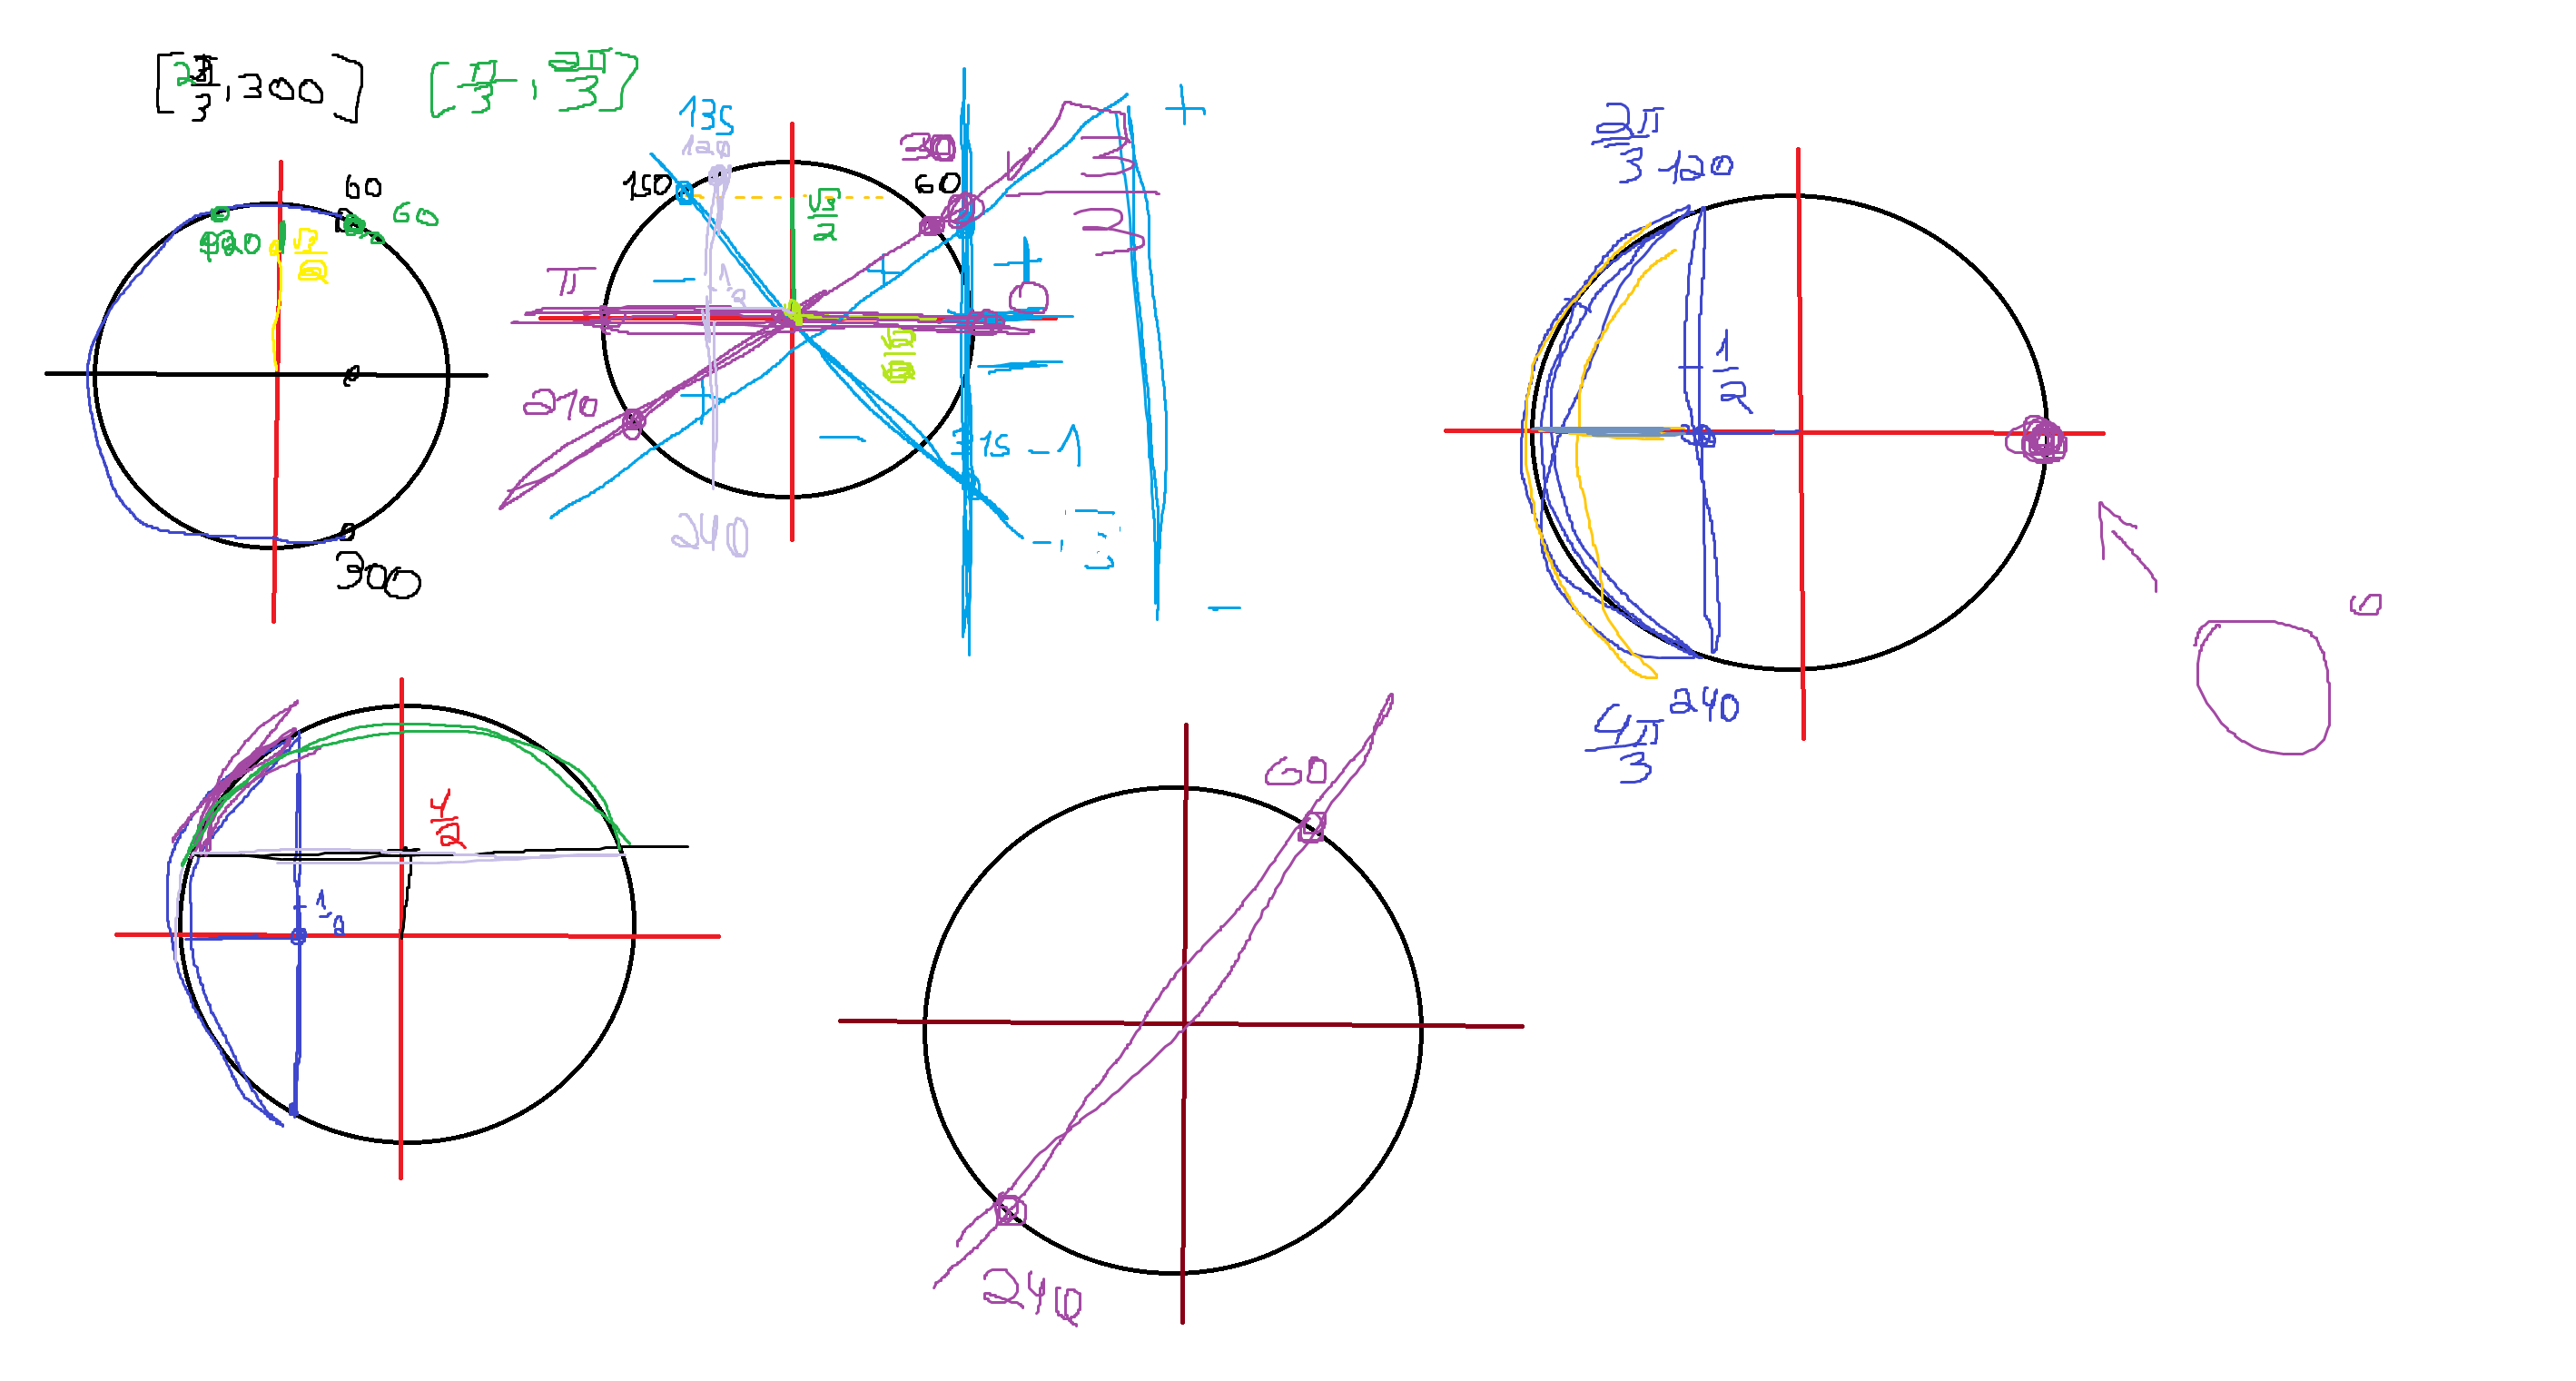 [2π/3, 300] [π/3, 2π/3]
60
60
120
√3/2
300
135
120
150
30
60
+
√3/2
√3/3
π
-
+
+
0
-1/2
210
+
-
-
315 -1
-√3
240
-
2π/3 120
-1/2
4π/3 240
0
1/2
-1/2
60
240